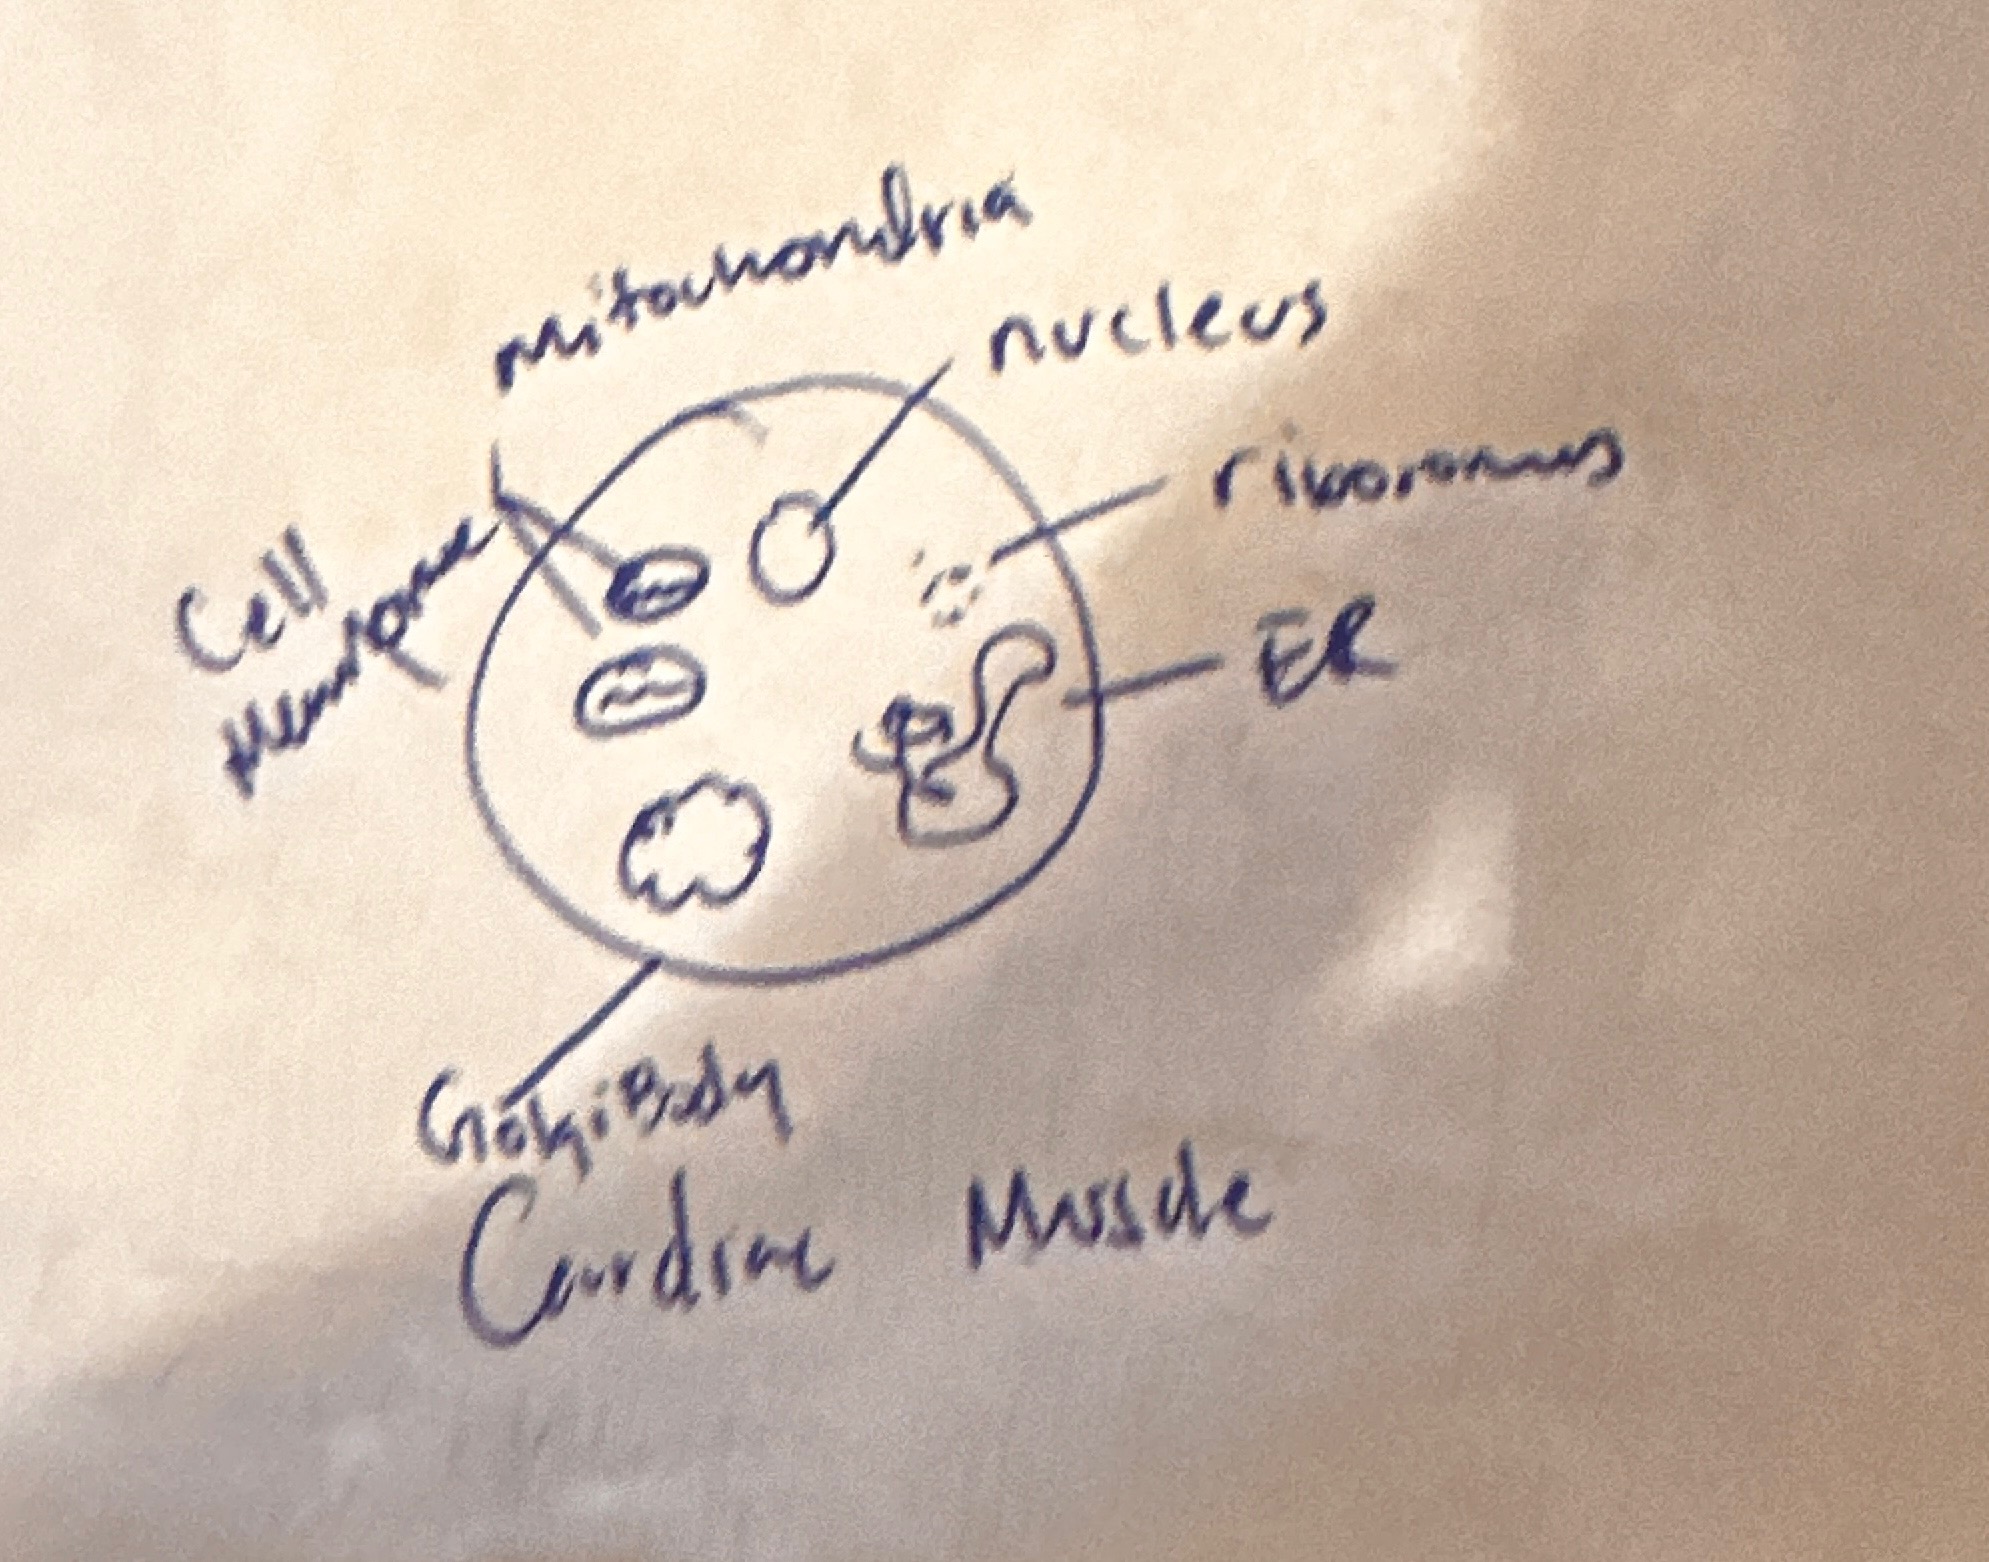 mitochondria
nucleus
ribosomes
Cell
Membrane
ER
GolgiBody
Cardiac Muscle